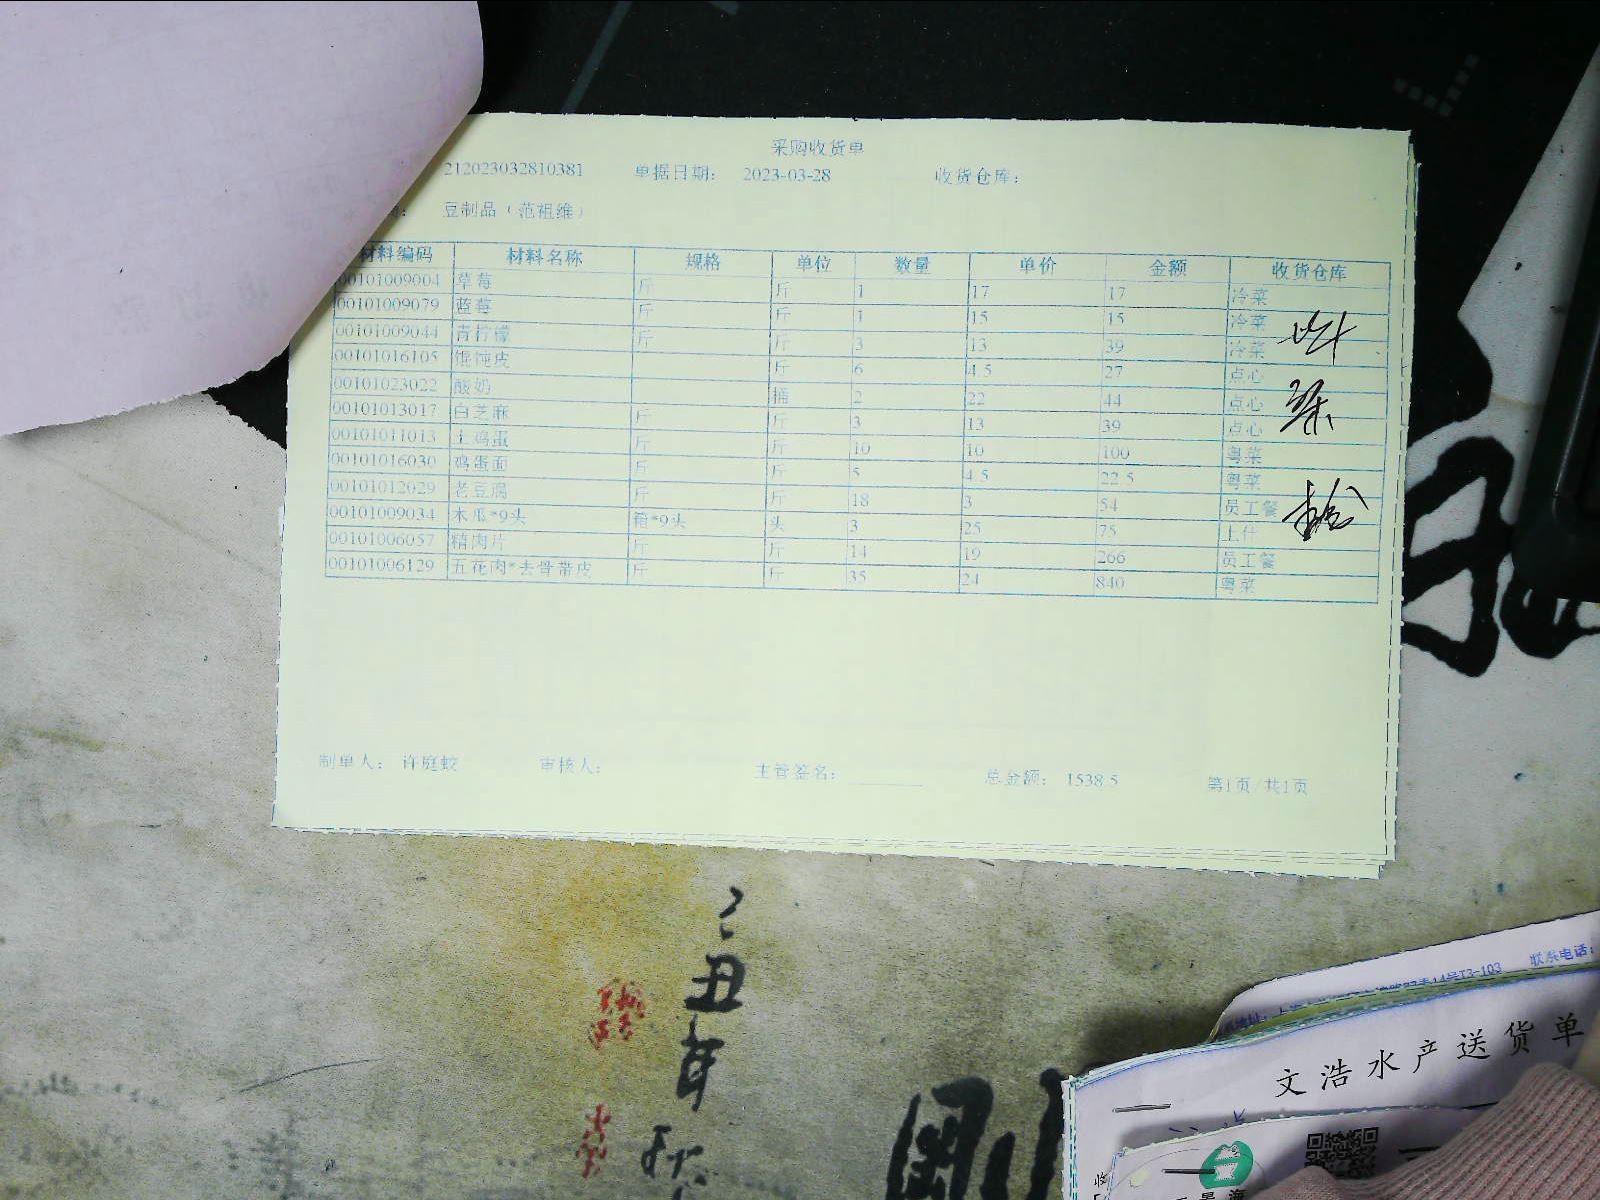 采购收货单
212023032810381 单据日期： 2023-03-28 收货仓库：
豆制品（范祖维）
材料编码 材料名称 规格 单位 数量 单价 金额 收货仓库
00101009004 草莓 斤 斤 1 17 17 冷菜
00101009079 蓝莓 斤 斤 1 15 15 冷菜
00101009044 青柠檬 斤 斤 3 13 39 冷菜
00101016105 馄饨皮 斤 6 4.5 27 点心
00101023022 酸奶 桶 2 22 44 点心
00101013017 白芝麻 斤 斤 3 13 39 点心
00101011013 土鸡蛋 斤 斤 10 10 100 粤菜
00101016030 鸡蛋面 斤 斤 5 4.5 22.5 粤菜
00101012029 老豆腐 斤 斤 18 3 54 员工餐
00101009034 木瓜*9头 箱*9头 头 3 25 75 上什
00101006057 精肉片 斤 斤 14 19 266 员工餐
00101006129 五花肉*去骨带皮 斤 斤 35 24 840 粤菜
制单人： 许庭蛟 审核人： 主管签名： 总金额： 1538.5 第1页/共1页
丑年
联系电话：
文浩水产送货单